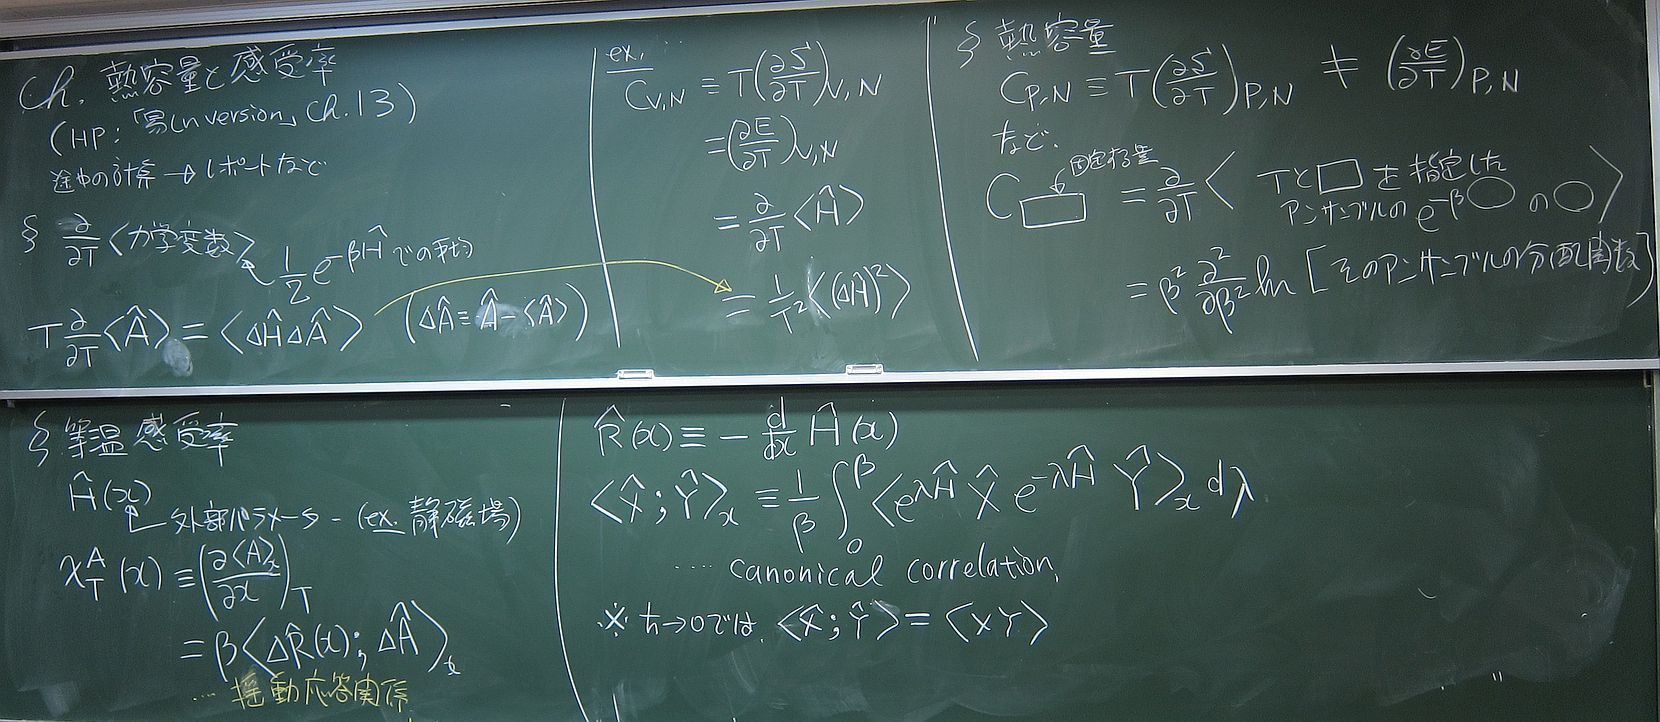 Ch. 熱容量と感受率
(HP:「易しい version」Ch.13)
途中の計算 → レポートなど
§ ∂/∂T <力学変数>
1/Z e^{-βĤ} での平均
T ∂/∂T <Â> = <ΔĤΔÂ> (ΔÂ ≡ Â - <Â>)
ex.
C_{V,N} ≡ T(∂S/∂T)_{V,N}
= (∂E/∂T)_{V,N}
= ∂/∂T <Ĥ>
= 1/T² <(ΔĤ)²>
§ 熱容量
C_{P,N} ≡ T(∂S/∂T)_{P,N} ≠ (∂E/∂T)_{P,N}
など.
固定する量
C_□ = ∂/∂T < Tと□を指定した
アンサンブルの e^{-β○} の○ >
= β² ∂²/∂β² ln [そのアンサンブルの分配関数]
§ 等温感受率
Ĥ(x)
外部パラメータ - (ex. 静磁場)
χ_T^A (x) ≡ (∂<A>_x/∂x)_T
= β<ΔR̂(x); ΔÂ>_x
.... 揺動応答関係
R̂(x) ≡ - d/dx Ĥ(x)
<X̂;Ŷ>_x ≡ 1/β ∫_0^β <e^{λĤ} X̂ e^{-λĤ} Ŷ>_x dλ
.... canonical correlation
※ ħ→0では, <X̂;Ŷ> = <XY>